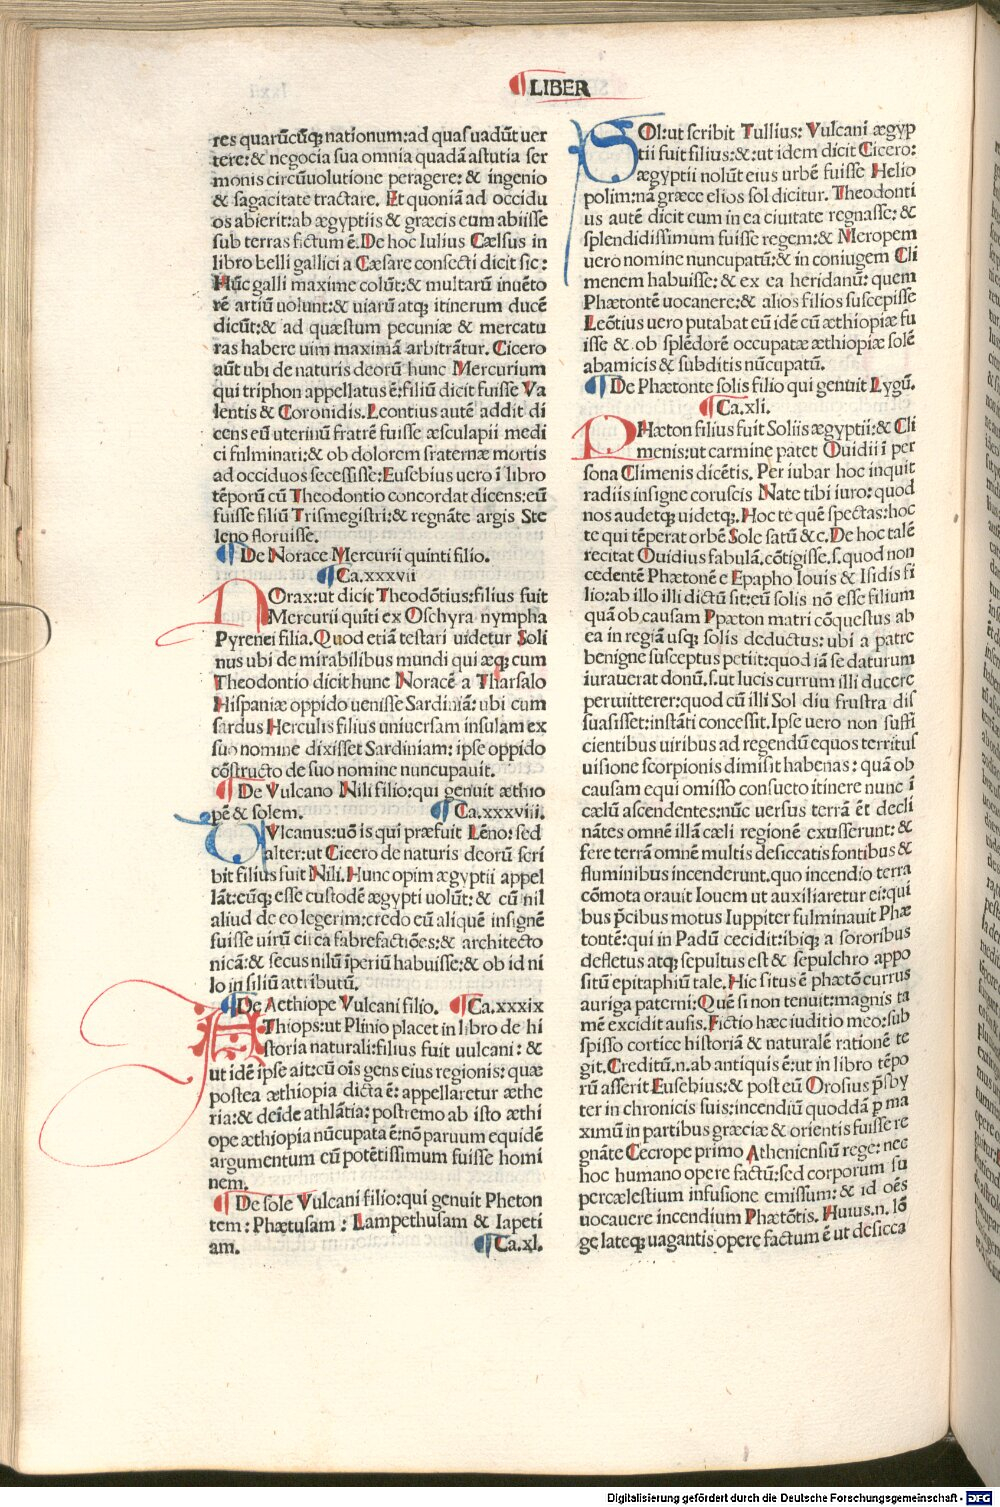 ¶LIBER
res quarūcūq; nationum: ad quas uadūt uer
tere: & negocia sua omnia quadā astutia ser
monis circūuolutione peragere: & ingenio
& sagacitate tractare. Et quoniā ad occidu
os abierit: ab ægyptiis & græcis eum abiisse
sub terras fictum ē. De hoc Iulius Cælsus in
libro belli gallici a Cæsare confecti dicit sic:
Hūc galli maxime colūt: & multarū inuēto
rē artiū uolunt: & uiarū atq; itinerum ducē
dicūt: & ad quæstum pecuniæ & mercatu
ras habere uim maximā arbitrātur. Cicero
aūt ubi de naturis deorū hunc Mercurium
qui triphon appellatus ē: filiū dicit fuisse Va
lentis & Coronidis. Leontius autē addit di
cens eū uterinū fratrē fuisse æsculapii medi
ci fulminati: & ob dolorem fraternæ mortis
ad occiduos secessisse: Eusebius uero ī libro
tēporū cū Theodontio concordat dicens: eū
fuisse filiū Trismegistri: & regnāte argis Ste
leno floruisse.
¶ De Norace Mercurii quinti filio.
¶ Ca. xxxvii
NOrax: ut dicit Theodōtius: filius fuit
Mercurii quīti ex Oschyra nympha
Pyrenei filia. Quod etiā testari uidetur Soli
nus ubi de mirabilibus mundi qui æq; cum
Theodontio dicit hunc Noracē a Tharsalo
Hispaniæ oppido uenisse Sardiniā: ubi cum
sardus Herculis filius uniuersam insulam ex
suo nomine dixisset Sardiniam: ipse oppido
cōstructo de suo nomine nuncupauit.
¶ De Vulcano Nili filio: qui genuit æthio
pē & solem. ¶ Ca. xxxviii.
VVlcanus: uō is qui præfuit Lēno: sed
alter: ut Cicero de naturis deorū scri
bit filius fuit Nili. Hunc opim ægyptii appel
lāt: eūq; esse custodē ægypti uolūt: & cū nil
aliud de eo legerim: credo eū aliquē insignē
fuisse uirū circa fabrefactiōes: & architecto
nicā: & secus nilū īperiū habuisse: & ob id ni
lo in filiū attributū.
¶ De Aethiope Vulcani filio. ¶ Ca. xxxix
AThiops: ut Plinio placet in libro de hi
storia naturali: filius fuit uulcani: &
ut idē ipse ait: cū oīs gens eius regionis: quæ
postea æthiopia dicta ē: appellaretur æthe
ria: & deīde athlātia: postremo ab isto æthi
ope æthiopia nūcupata ē: nō paruum equidē
argumentum eū potētissimum fuisse homi
nem.
¶ De sole Vulcani filio: qui genuit Pheton
tem: Phætusam: Lampethusam & Iapeti
am. ¶ Ca. xl.
SOl: ut scribit Tullius: Vulcani ægyp
tii fuit filius: &: ut idem dicit Cicero:
ægyptii nolūt eius urbē fuisse Helio
polim: nā græce elios sol dicitur. Theodonti
us autē dicit eum in ea ciuitate regnasse: &
splendidissimum fuisse regem: & Meropem
uero nomine nuncupatū: & in coniugem Cli
menem habuisse: & ex ea heridanū: quem
Phætontē uocauere: & alios filios suscepisse
Leōtius uero putabat eū idē cū æthiopiæ fu
isse & ob splēdorē occupatæ æthiopiæ solē
ab amicis & subditis nūcupatū.
¶ De Phætonte solis filio qui genuit Lygū.
¶ Ca. xli.
PHæton filius fuit Soliis ægyptii: & Cli
menis: ut carmine patet Ouidii ī per
sona Climenis dicētis. Per iubar hoc inquit
radiis insigne coruscis Nate tibi iuro: quod
nos audetq; uidetq;. Hoc te quē spectas: hoc
te qui tēperat orbē Sole satū &c. De hoc talē
recitat Ouidius fabulā. cōtigisse. s. quod non
cedentē Phætonē e Epapho Iouis & Isidis fi
lio: ab illo illi dictū sit: eū solis nō esse filium
quā ob causam Ppæton matri cōquestus ab
ea in regiā usq; solis deductus: ubi a patre
benigne susceptus petiit: quod iā se daturum
iurauerat donū. s. ut lucis currum illi ducere
peruitterer: quod cū illi Sol diu frustra dis
suasisset: instāti concessit. Ipse uero non suffi
cientibus uiribus ad regendū equos territus
uisione scorpionis dimisit habenas: quā ob
causam equi omisso consueto itinere nunc ī
cælū ascendentes: nūc uersus terrā ēt decli
nātes omnē illā cæli regionē exusserunt: &
fere terrā omnē multis desiccatis fontibus &
fluminibus incenderunt. quo incendio terra
cōmota orauit Iouem ut auxiliaretur ei: qui
bus p̄cibus motus Iuppiter fulminauit Phæ
tontē: qui in Padū cecidit: ibiq; a sororibus
defletus atq; sepultus est & sepulchro appo
sitū epitaphiū tale. Hic situs ē phætō currus
auriga paterni: Quē si non tenuit: magnis ta
mē excidit ausis. Fictio hæc iuditio meo: sub
spisso cortice historiā & naturalē rationē te
git. Creditū. n. ab antiquis ē: ut in libro tēpo
rū asserit Eusebius: & post eū Orosius p̄sby
ter in chronicis suis: incendiū quoddā p ma
ximū in partibus græciæ & orientis fuisse re
gnāte Cecrope primo Atheniensiū rege: nec
hoc humano opere factū: sed corporum su
percælestium infusione emissum: & id oēs
uocauere incendium Phætōtis. Huius. n. lō
ge lateq; uagantis opere factum ē ut desicca
Digitalisierung gefördert durch die Deutsche Forschungsgemeinschaft - DFG